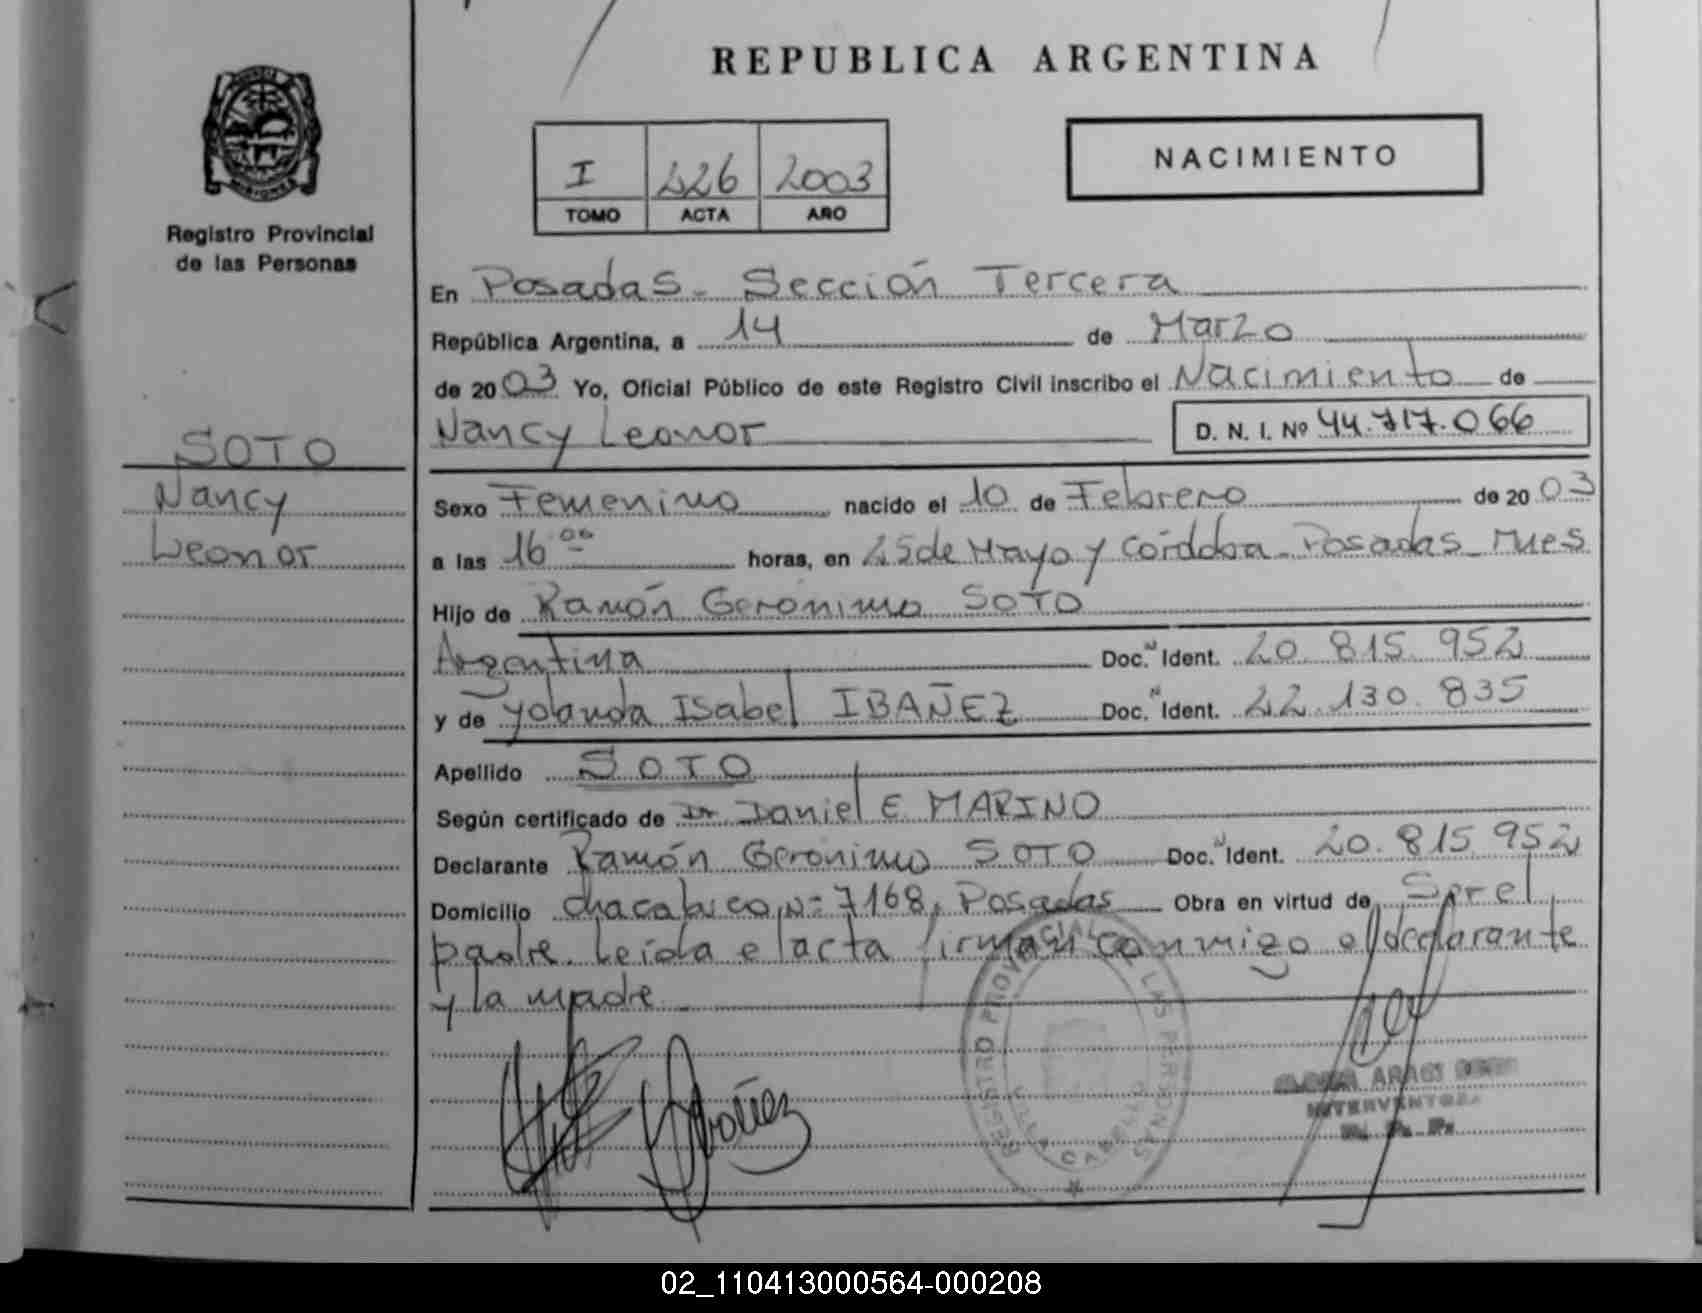 REPUBLICA ARGENTINA
MISIONES
Registro Provincial
de las Personas
I 226 2003
TOMO ACTA AÑO
NACIMIENTO
En Posadas - Sección Tercera
República Argentina, a 14 de Marzo
de 2003 Yo, Oficial Público de este Registro Civil inscribo el Nacimiento de
Nancy Leonor D. N. I. Nº 44.717.066
SOTO
Nancy
Leonor
Sexo Femenino nacido el 10 de Febrero de 2003
a las 16 00 horas, en 25 de Mayo y Córdoba - Posadas - Mnes
Hijo de Ramón Gerónimo SOTO
Argentina Doc. N Ident. 20.815.952
y de Yolanda Isabel IBAÑEZ Doc. N Ident. 22.130.835
Apellido SOTO
Según certificado de Dr Daniel E MARINO
Declarante Ramón Gerónimo SOTO Doc. N Ident. 20.815.952
Domicilio Chacabuco Nº 7168, Posadas Obra en virtud de Ser el
padre. Leída el acta firman conmigo el declarante
y la madre
REGISTRO PROVINCIAL DE LAS PERSONAS
VILLA CABELLO
INTERVENTORA
R. P. P.
02_110413000564-000208